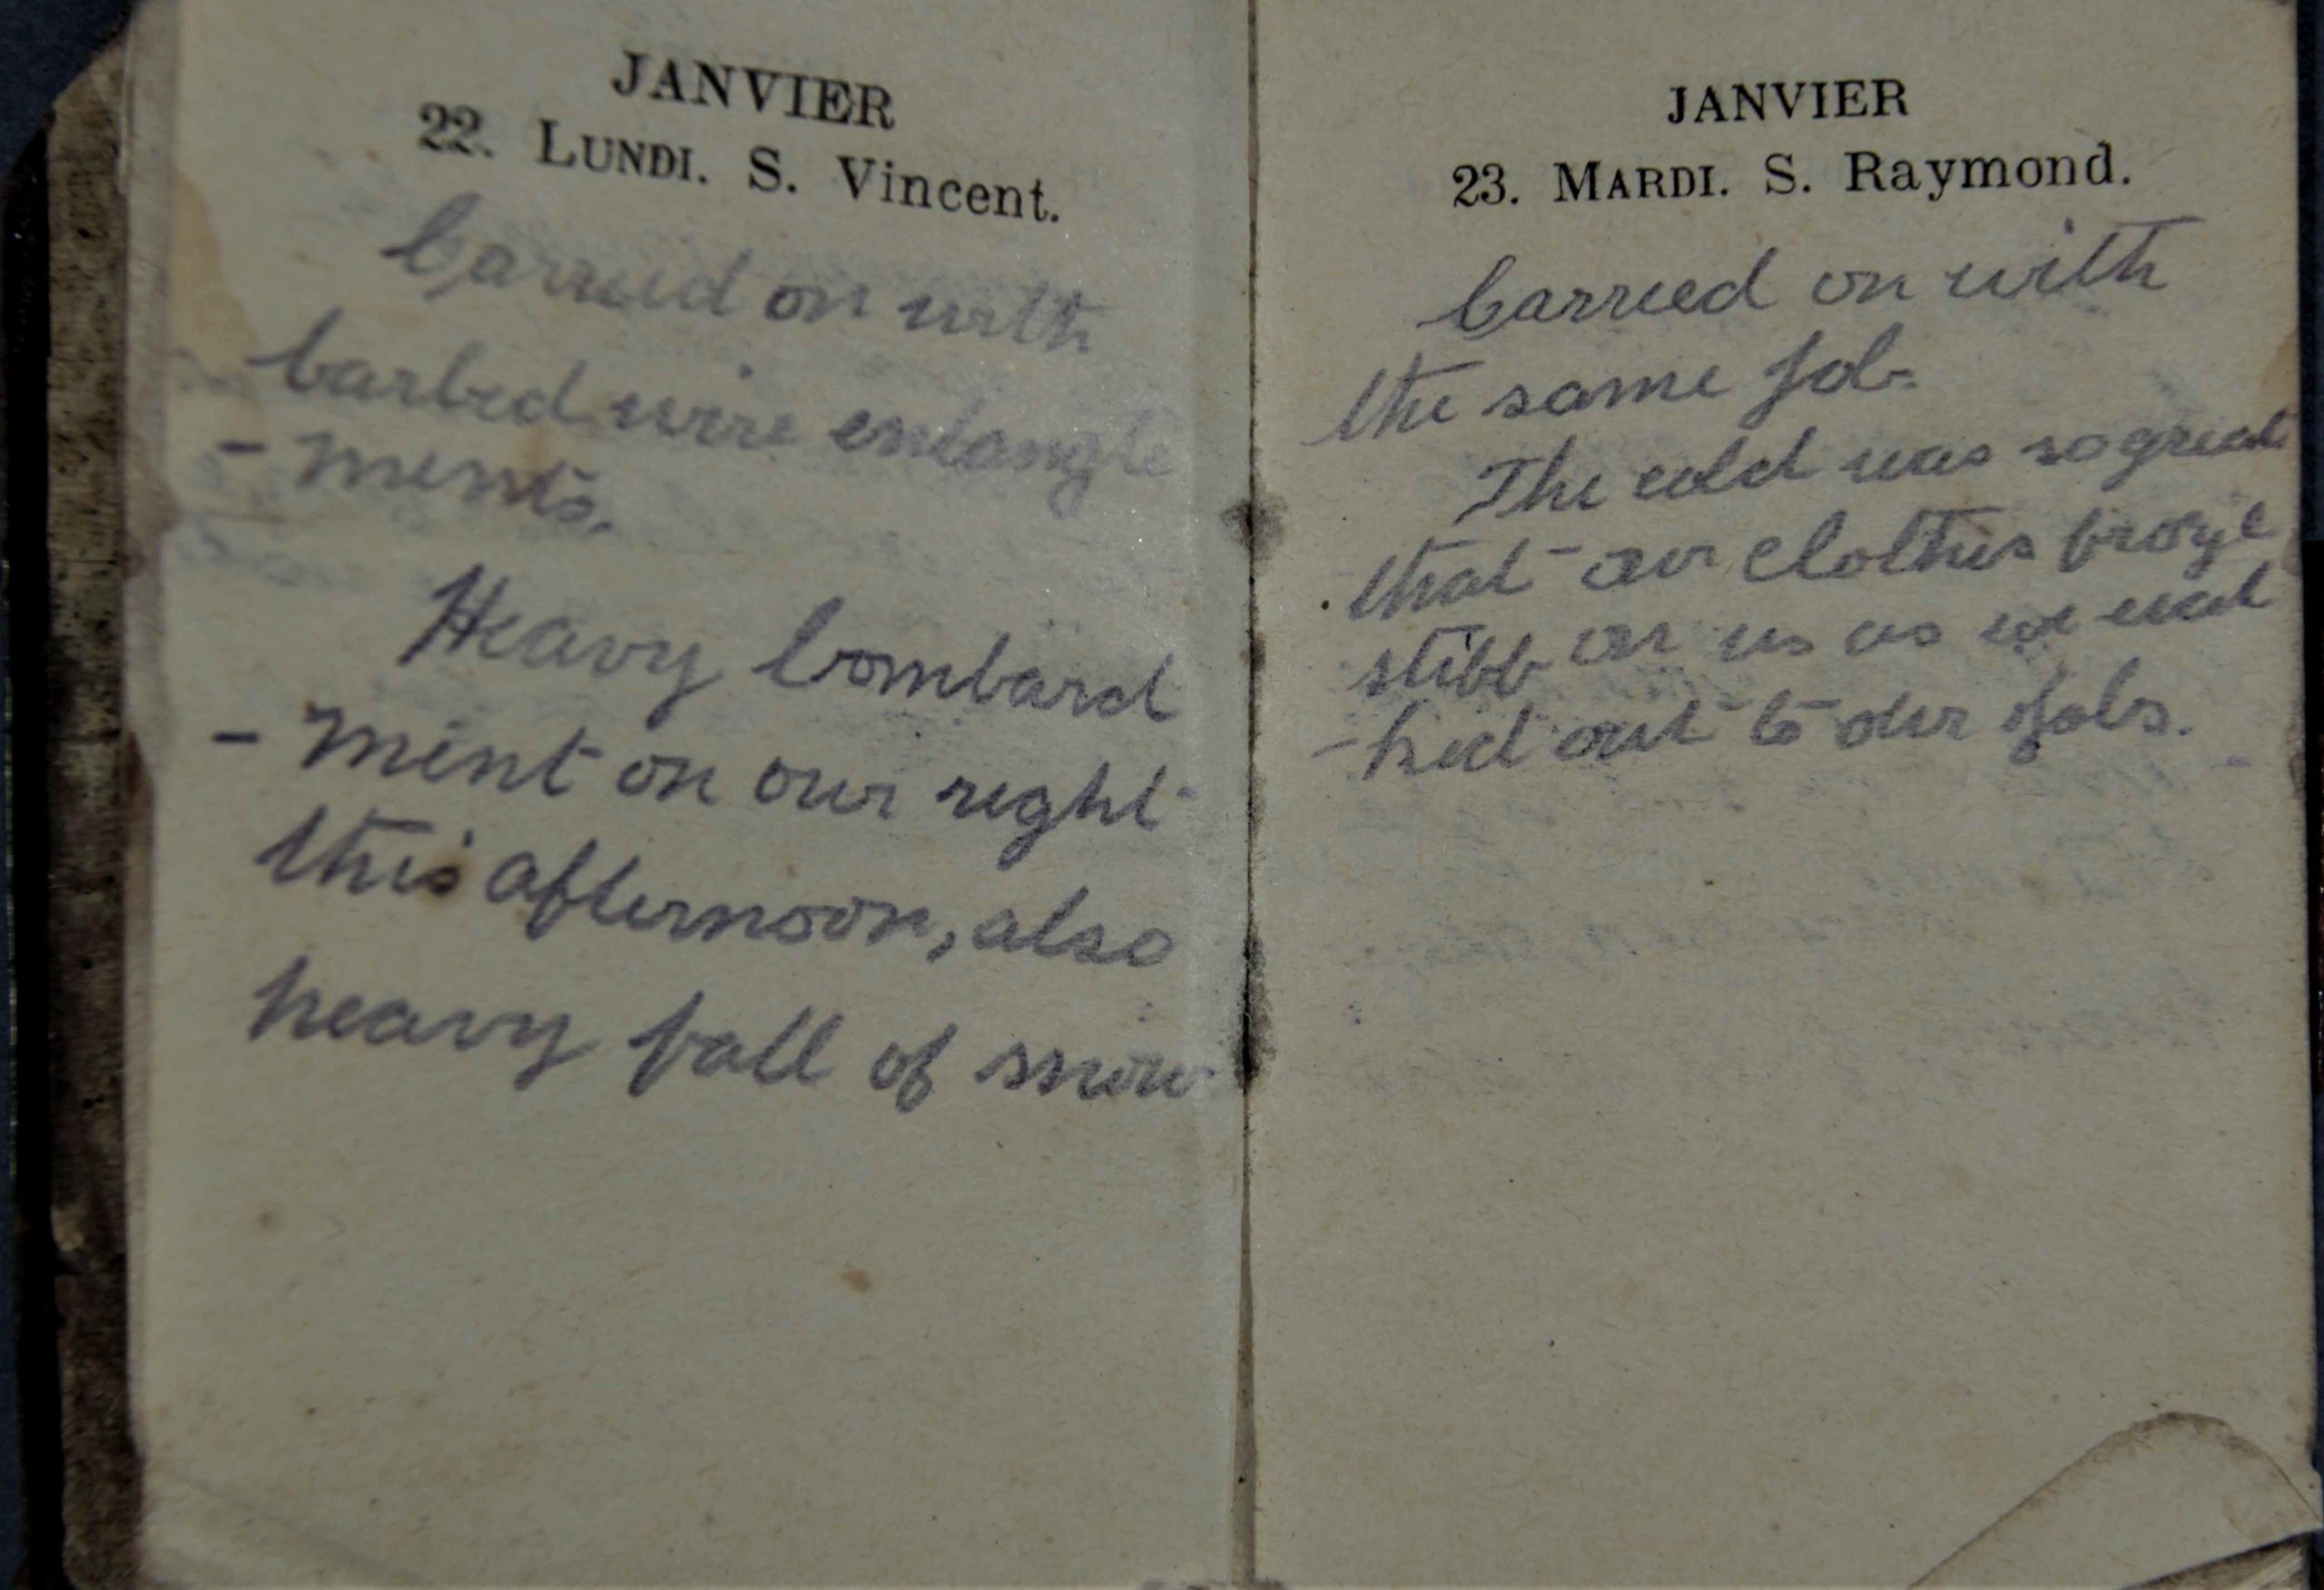 JANVIER
22. LUNDI. S. Vincent.
Carried on with
barbed wire entangle
- ments.
Heavy bombard
- ment on our right
this afternoon, also
heavy fall of snow
JANVIER
23. MARDI. S. Raymond.
Carried on with
the same job.
The cold was so great
that our clothes froze
stiff on us as we wal
- ked out to our jobs.